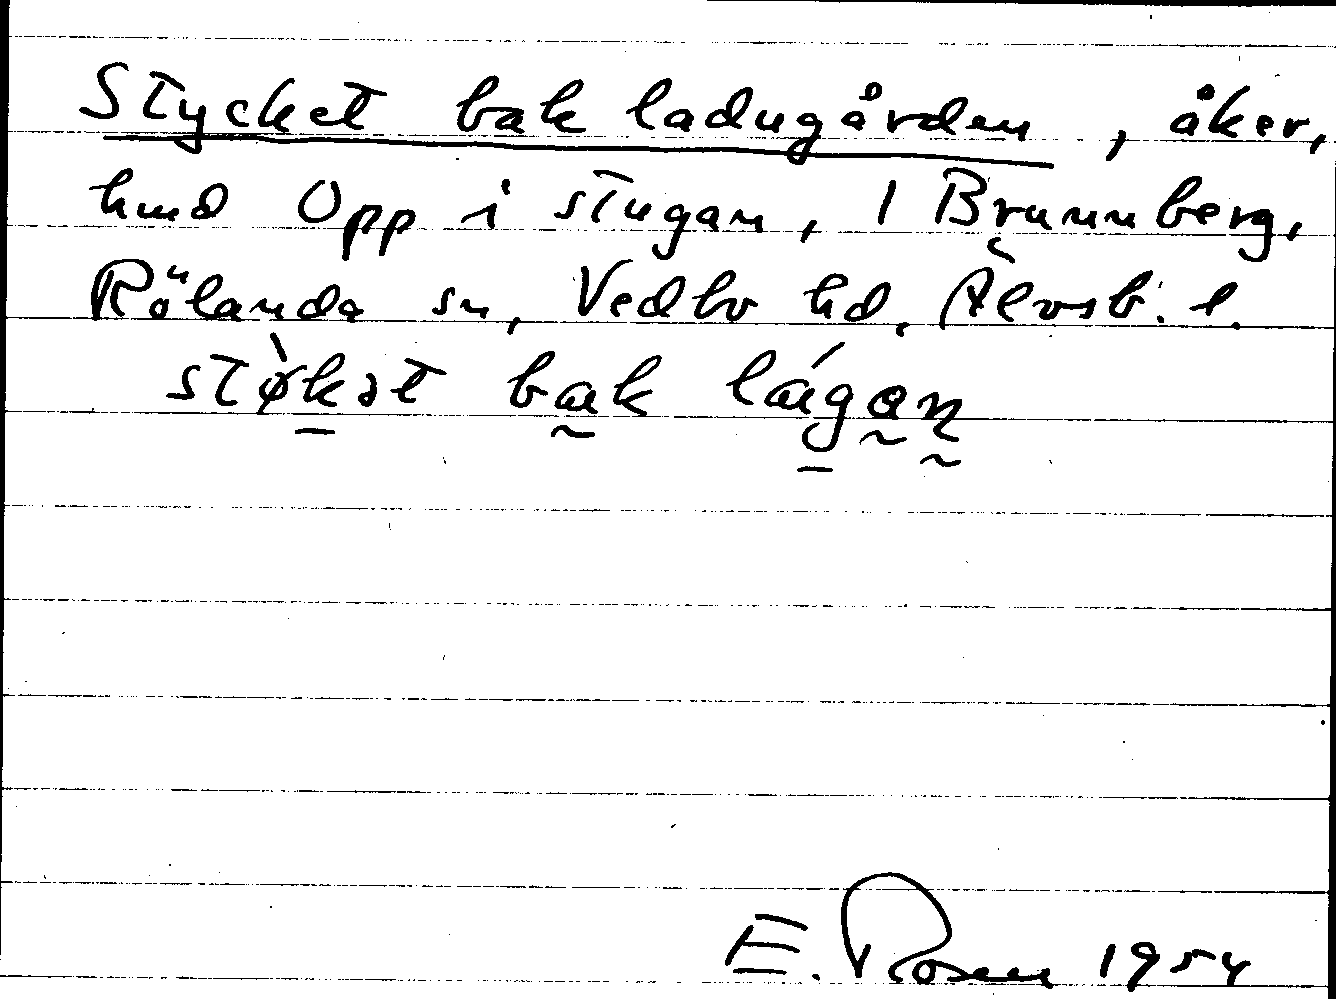 Stycket bak ladugården, åker,
hmd Opp i stugan, 1 Brunnberg,
Rölanda sn, Vedbo hd, Älvsb. l.
støkət bak lágan
E. Rosen 1954